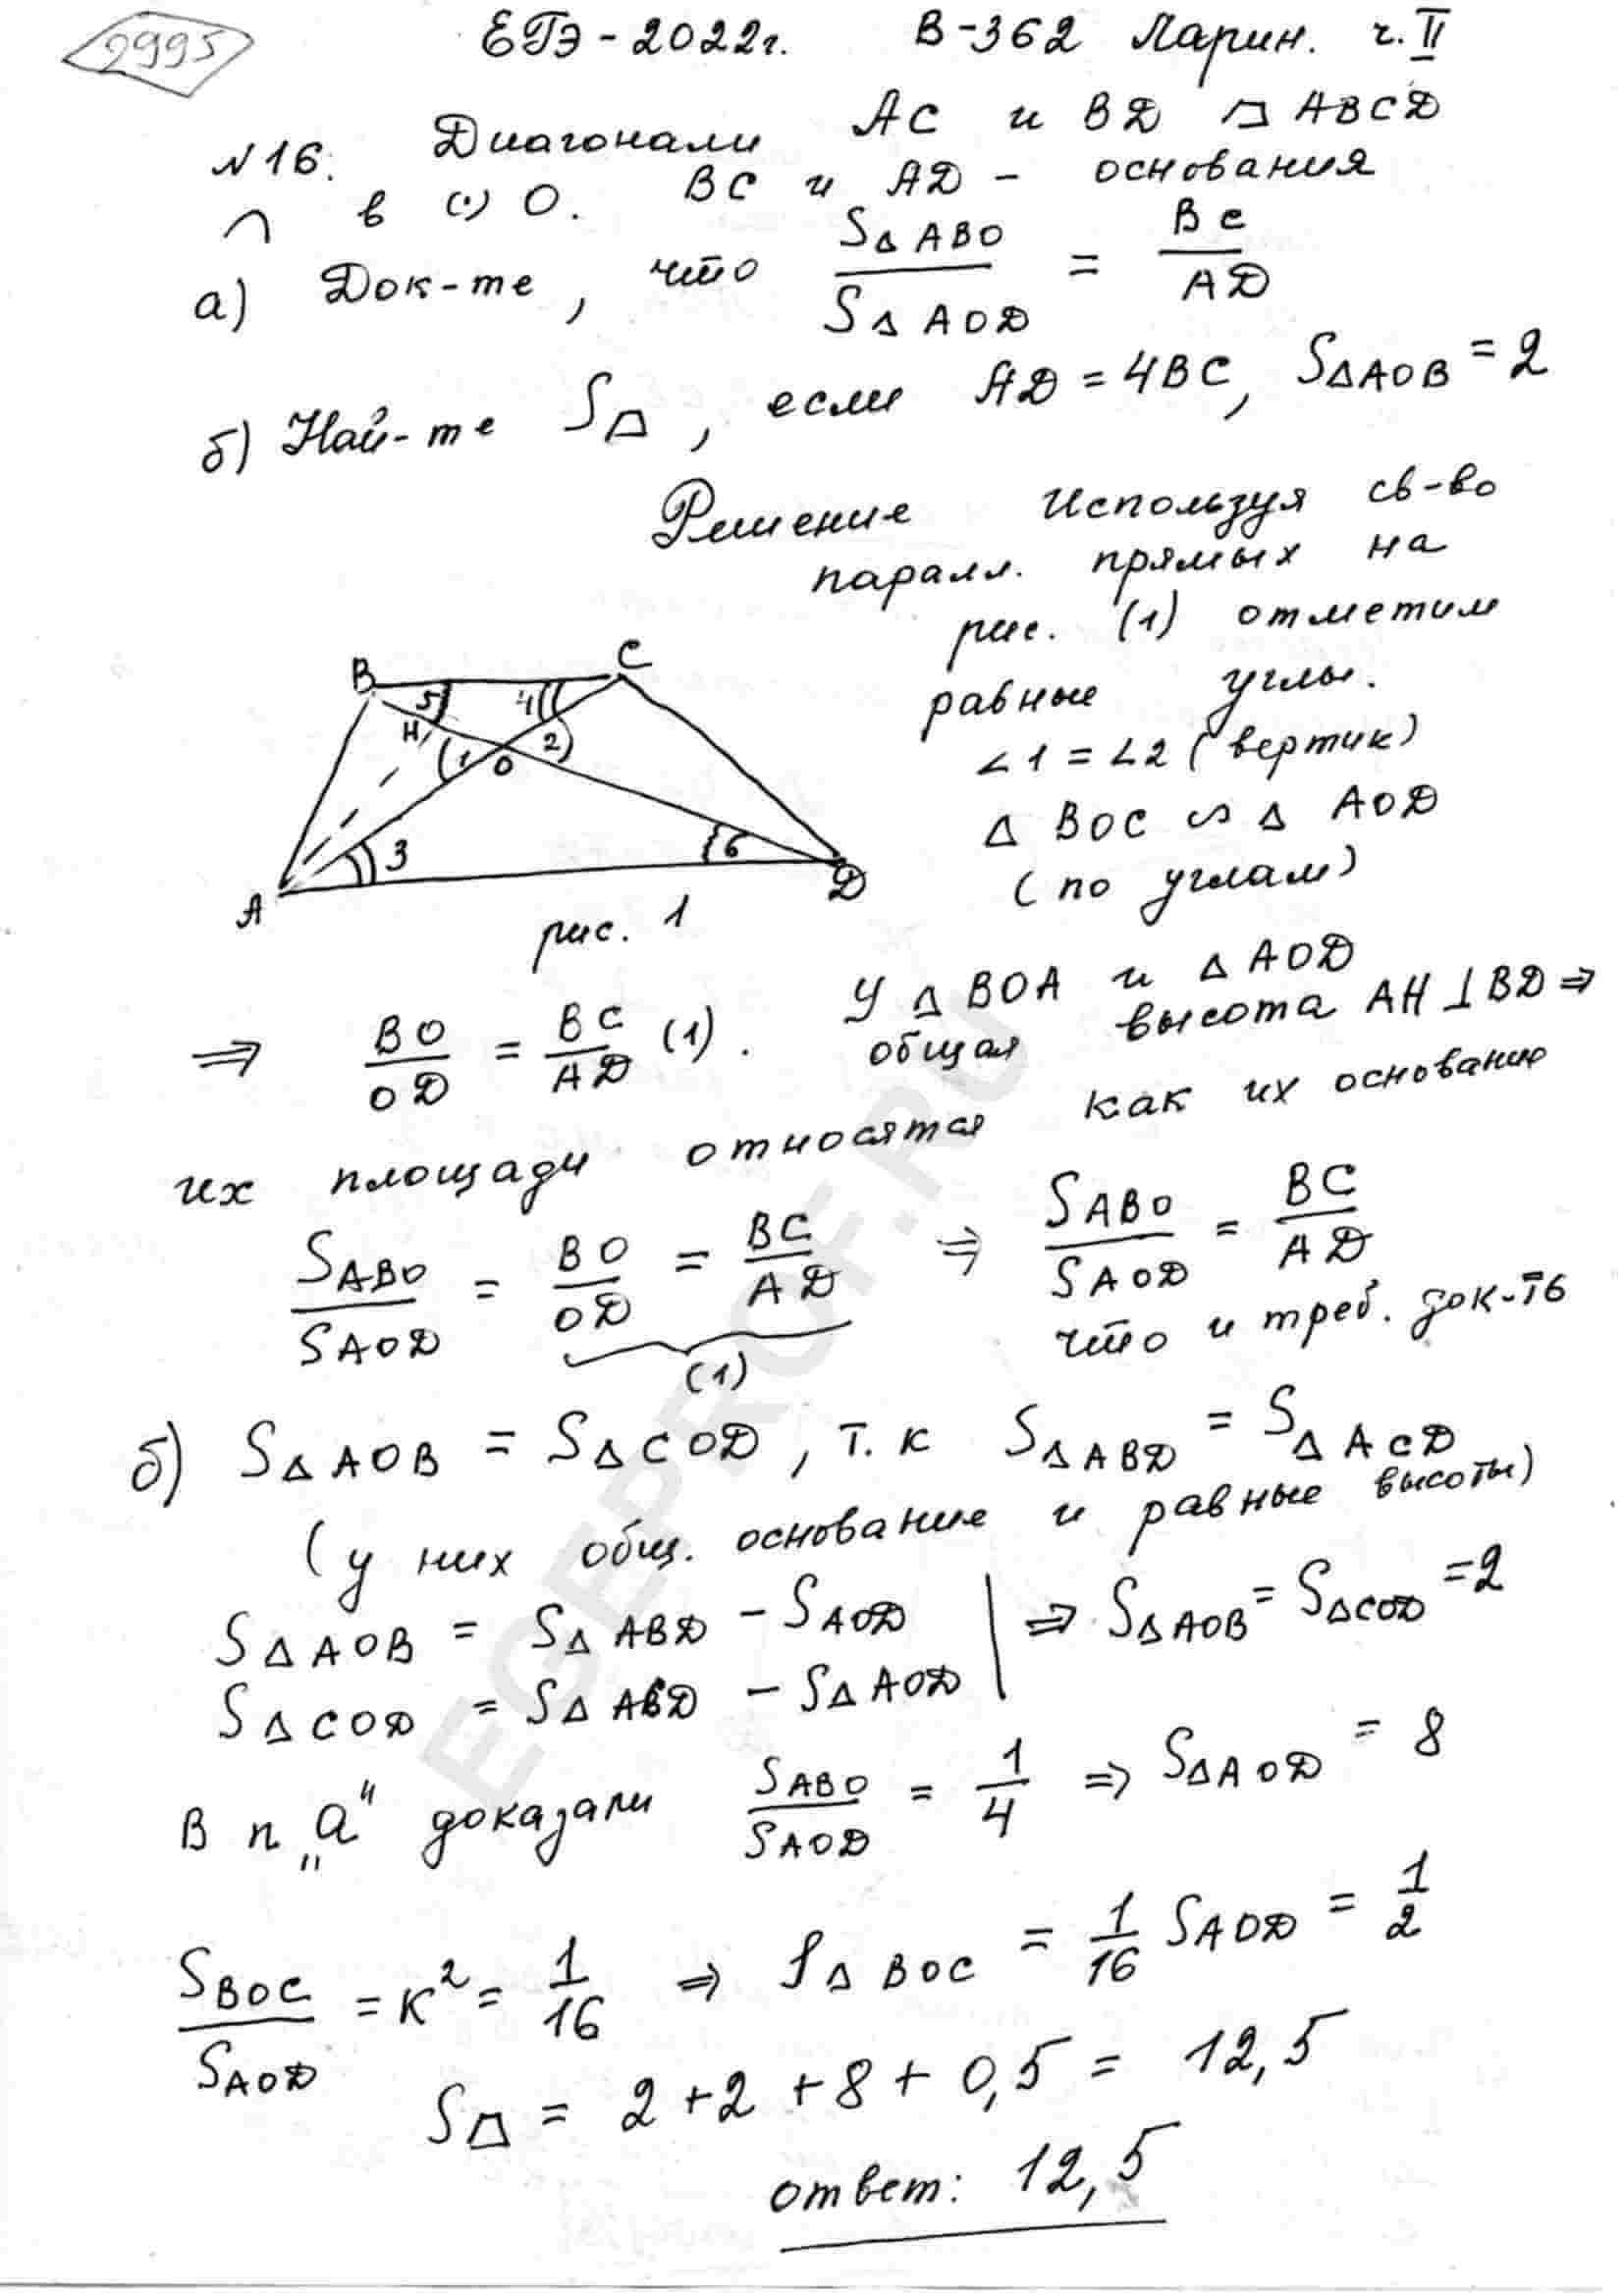 2995
ЕГЭ-2022г. В-362 Ларин. ч.II
№16. Диагонали AC и BD ⏢ ABCD
∩ в (·) O. BC и AD - основания
а) Док-те, что S△ABO / S△AOD = BC / AD
б) Най-те S⏢, если AD = 4BC, S△AOB = 2
Решение Используя св-во
паралл. прямых на
рис. (1) отметим
равные углы.
∠1 = ∠2 (вертик)
△ BOC ∽ △ AOD
(по углам)
B C
5 4
H 1 2
O
3 6
A D
рис. 1
⇒ BO / OD = BC / AD (1). У △ BOA и △ AOD
общая высота AH ⊥ BD ⇒
их площади относятся как их основание
SABO / SAOD = BO / OD = BC / AD ⇒ SABO / SAOD = BC / AD
(1) что и треб. док-ть
б) S△AOB = S△COD, т.к S△ABD = S△ACD
(у них общ. основание и равные высоты)
S△AOB = S△ABD - SAOD | ⇒ S△AOB = S△COD = 2
S△COD = S△ABD - S△AOD
В п „а" доказали SABO / SAOD = 1/4 ⇒ S△AOD = 8
SBOC / SAOD = K² = 1/16 ⇒ S△BOC = 1/16 SAOD = 1/2
S⏢ = 2+2+8+0,5 = 12,5
ответ: 12,5
EGEPROF.RU